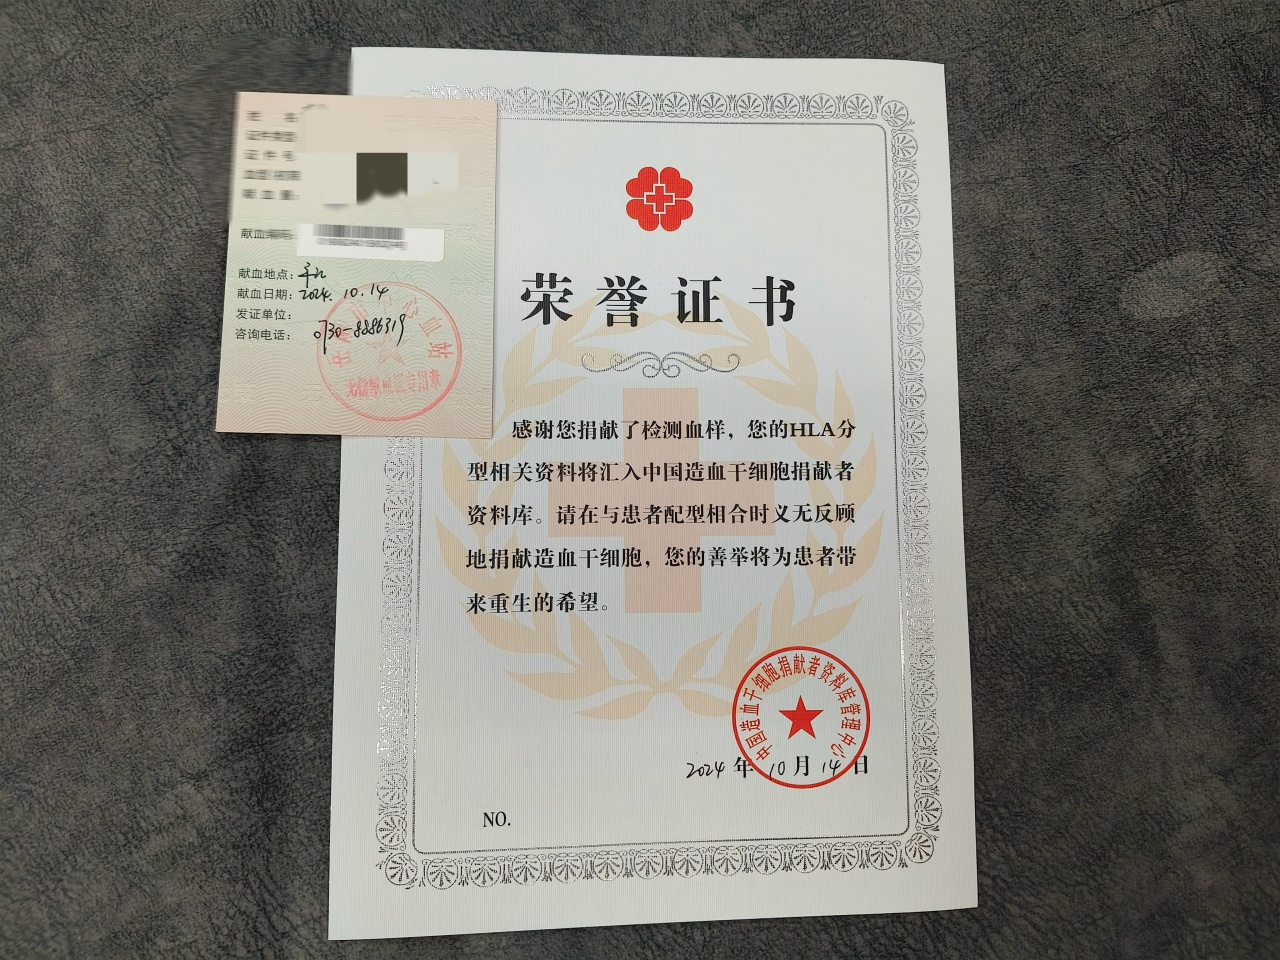 姓 名
证件类型
证 件 号
献 血 量:
献血编码:
献血地点:
献血日期: 2024. 10. 14
发证单位:
咨询电话: 0730-8886319
心血站
荣誉证书
感谢您捐献了检测血样，您的HLA分
型相关资料将汇入中国造血干细胞捐献者
资料库。请在与患者配型相合时义无反顾
地捐献造血干细胞，您的善举将为患者带
来重生的希望。
中国造血干细胞捐献者资料库管理中心
2024 年 10 月 14 日
NO.